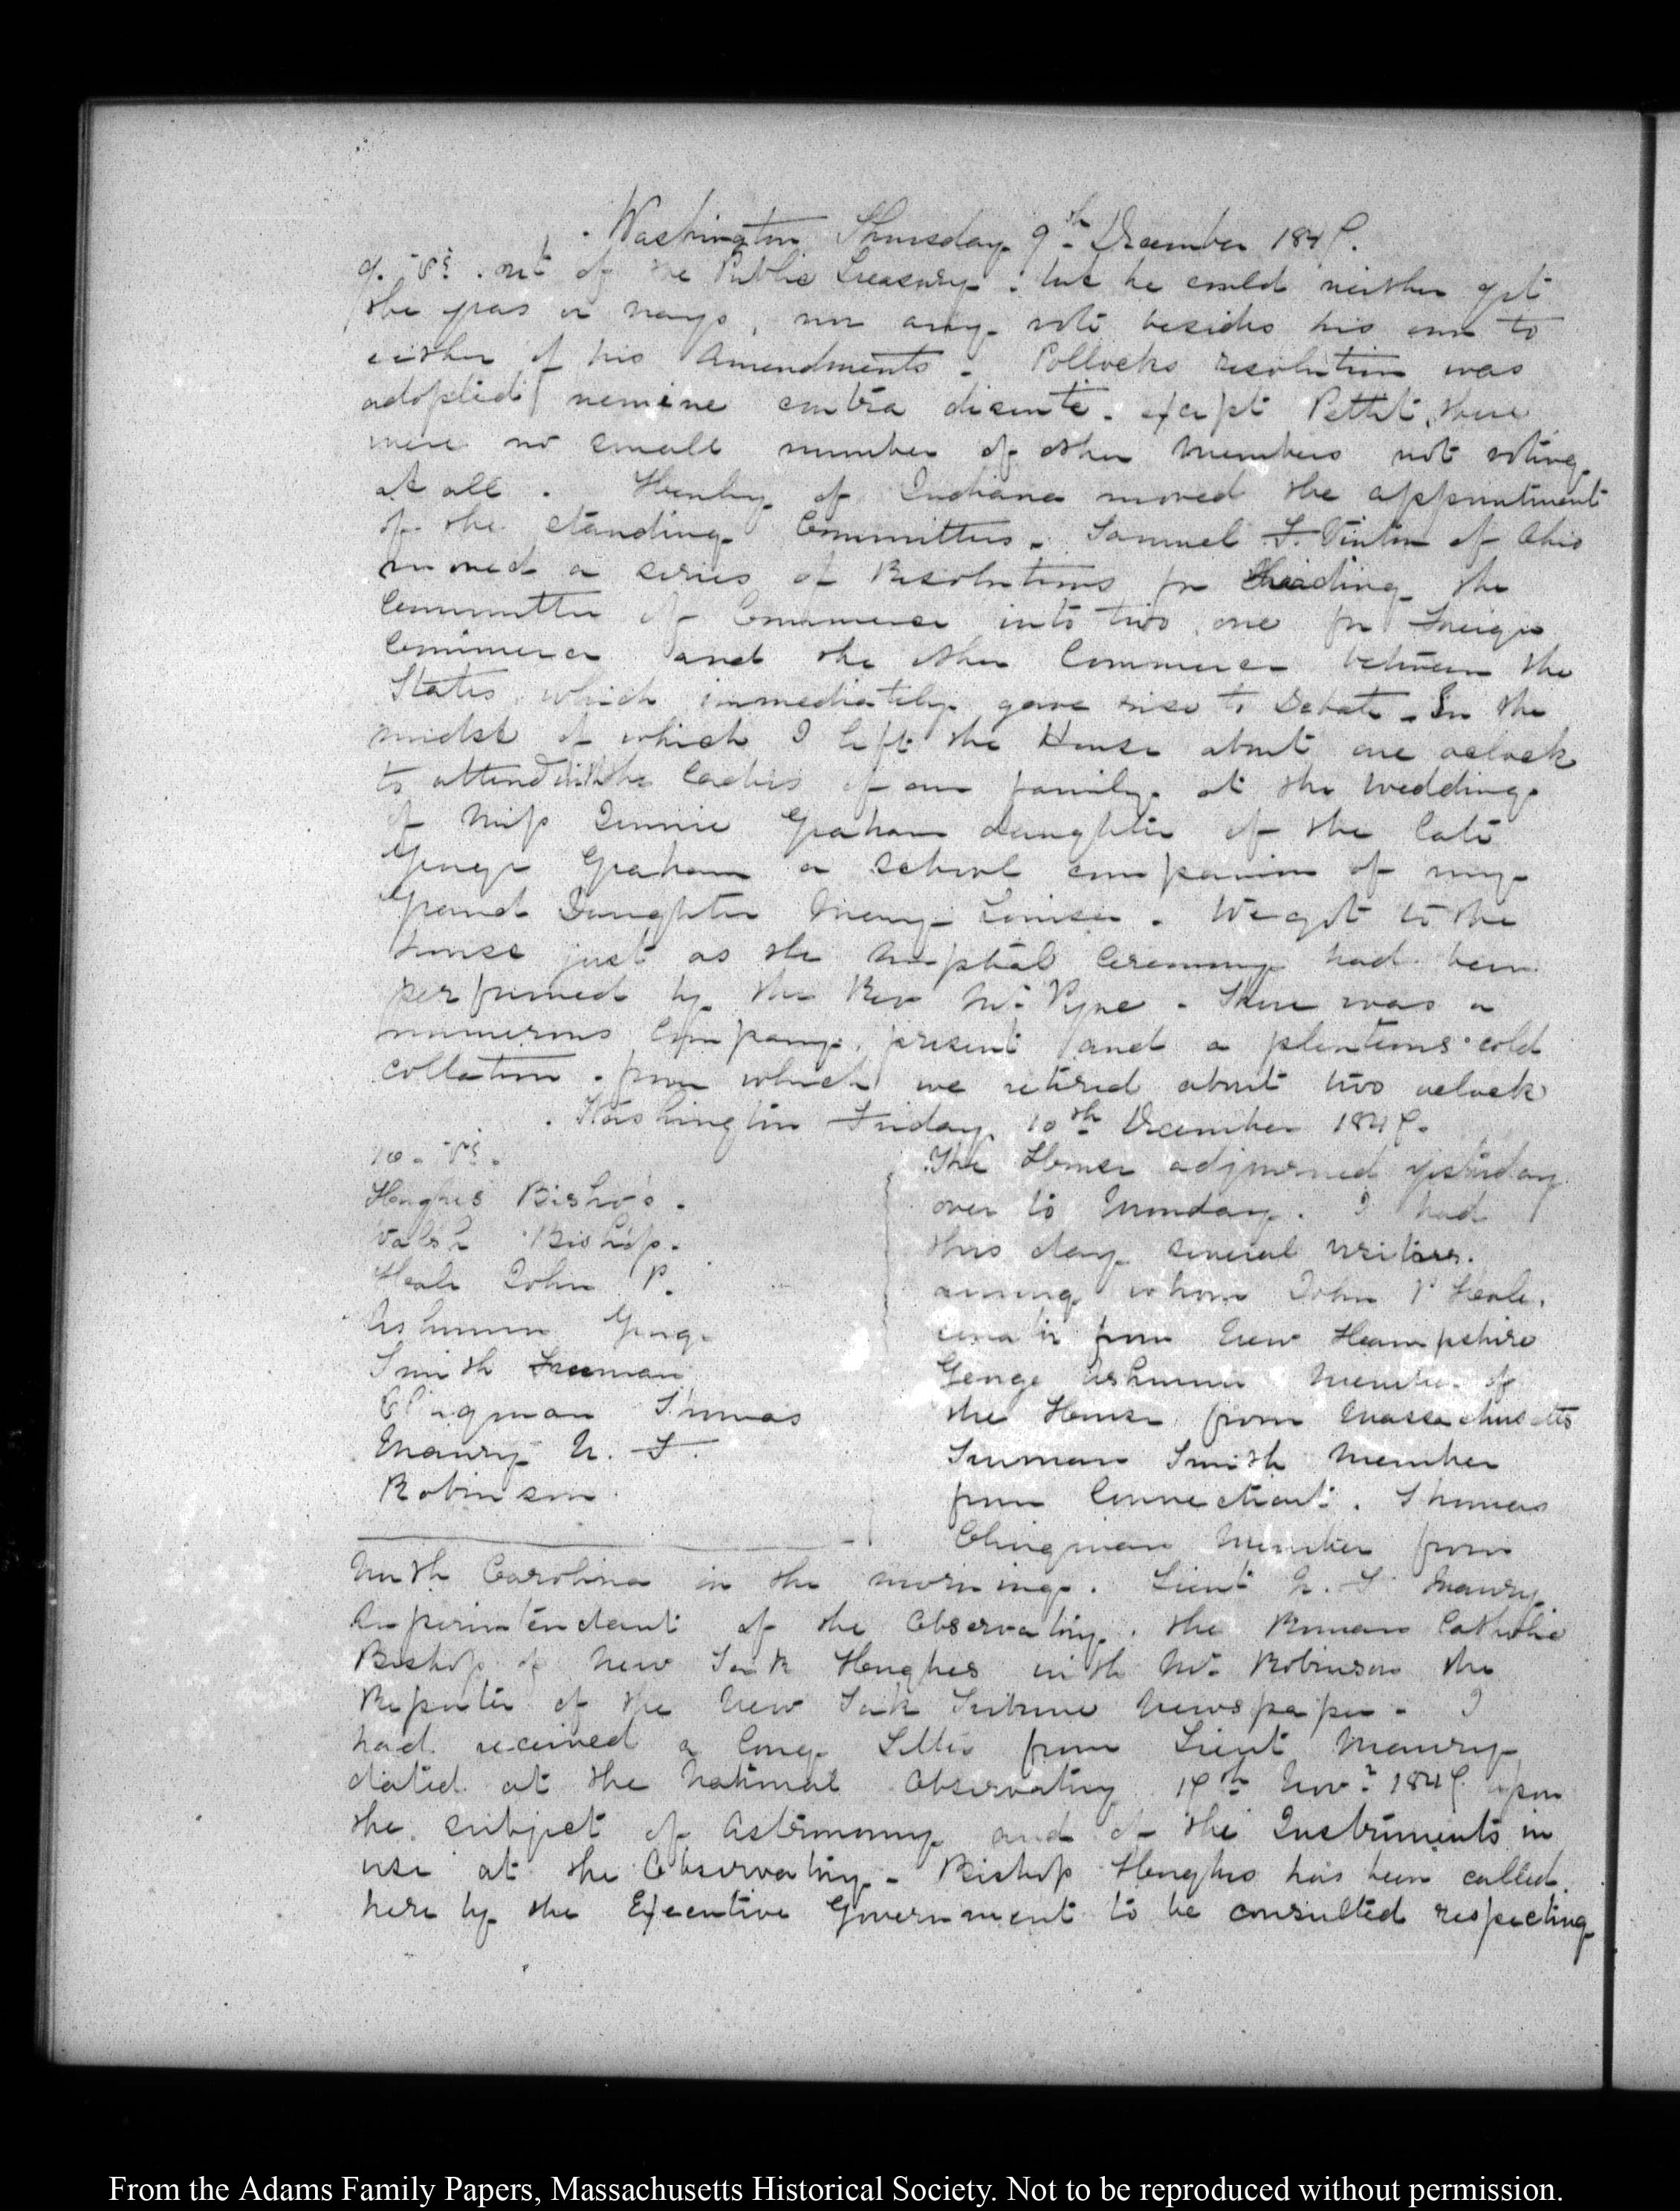 Washington Thursday 9th December 1847.
9. V. out of the Public Treasury. but he could neither get
the yeas or nays, nor any vote besides his own to
either of his Amendments. Pollocks resolution was
adopted nemine contra dicente. except Pettit, there
were no small number of other Members not voting
at all. Henley of Indiana moved the appointment
of the standing Committees. Samuel F. Vinton of Ohio
moved a series of Resolutions for the
Committee of Commerce into two, one for Foreign
Commerce and the other Commerce between the
States, which immediately gave rise to Debate. In the
midst of which I left the House about one oclock
to attend with the ladies of our family at the wedding
of Miss Jennie Graham daughter of the late
George Graham a School companion of my
Grand Daughter Mary Louisa. We got to the
house just as the nuptial Ceremony had been
performed by the Rev Mr. Pyne. There was a
numerous Company present and a plenteous cold
collation. from which we retired about two oclock
Washington Friday 10th December 1847.
10. V.
Hughes Bishop.
Walsh Bishop.
Hale John P.
Ashmun George
Smith Truman
Clingman Thomas
Maury M. F.
Robinson
The House adjourned yesterday
over to Monday. I had
this day several visitors.
among whom John P Hale.
senator from New Hampshire
George Ashmun Member of
the House from Massachusetts
Truman Smith Member
from Connecticut. Thomas
Clingman Member from
North Carolina in the morning. Lieut M. F. Maury
Superintendent of the Observatory. the Roman Catholic
Bishop of New York Hughes with Mr. Robinson the
Reporter of the New York Tribune Newspaper. I
had received a long Letter from Lieut Maury
dated at the National Observatory 17th Novr. 1847 upon
the subject of Astronomy and of the Instruments in
use at the Observatory. Bishop Hughes has been called
here by the Executive Government to be consulted respecting
From the Adams Family Papers, Massachusetts Historical Society. Not to be reproduced without permission.